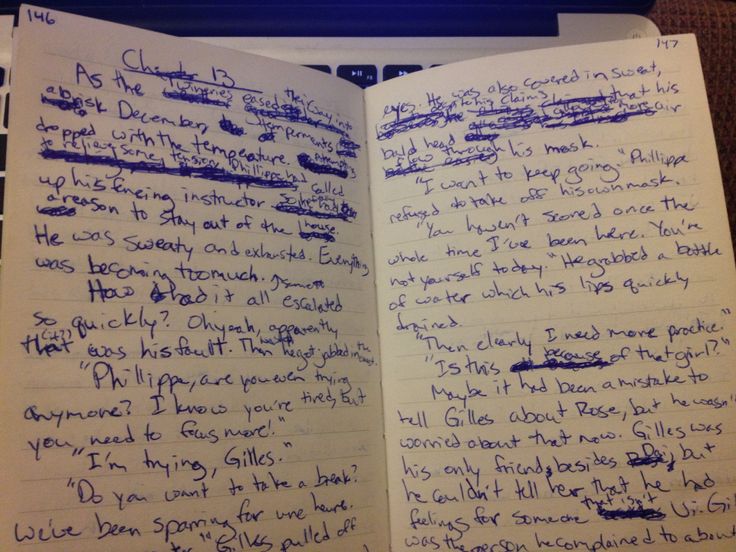 146
Chapter 13
As the wineries eased their way into
a brisk December,
dropped with the temperature.
to relieve some tension, Phillippe had called
up his fencing instructor so he had
a reason to stay out of the house.
He was sweaty and exhausted. Everything
was becoming too much.
How had it all escalated
so quickly? Oh yeah, apparently
that was his fault. Then he got jabbed in the
"Phillippe, are you even trying
anymore? I know you're tired, but
you need to focus more!"
"I'm trying, Gilles."
"Do you want to take a break?
We've been sparring for une heure.
" Gilles pulled off
147
eyes. He was also covered in sweat,
despite his claims that his
bald head more air
flow through his mask.
"I want to keep going." Phillippe
refused to take off his own mask.
"You haven't scored once the
whole time I've been here. You're
not yourself today." He grabbed a bottle
of water which his lips quickly
drained.
"Then clearly I need more practice."
"Is this because of that girl?"
Maybe it had been a mistake to
tell Gilles about Rose, but he wasn't
worried about that now. Gilles was
his only friend, besides but
he couldn't tell her that he had
feelings for someone that isn't
was the person he complained to about